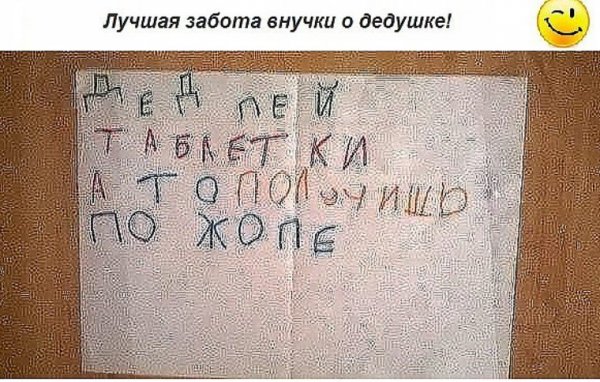 Лучшая забота внучки о дедушке!
ДЕД ПЕЙ
ТАБЛЕТКИ
А ТО ПОЛУЧИШЬ
ПО ЖОПЕ